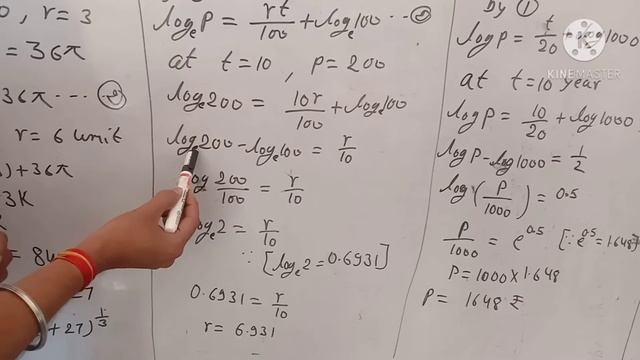 0 , r = 3
= 36π
36π ···
r = 6 unit
) + 36π
3K
+ 27)^{1/3}
log_e P = rt/100 + log_e 100 ···
at t = 10 , P = 200
log_e 200 = 10r/100 + log_e 100
log_e 200 - log_e 100 = r/10
log 200/100 = r/10
log_e 2 = r/10
∵ [log_e 2 = 0.6931]
0.6931 = r/10
r = 6.931
By ①
log P = t/20 + log 1000
at t = 10 year
log P = 10/20 + log 1000
log P - log 1000 = 1/2
log (P/1000) = 0.5
P/1000 = e^{0.5} [∵ e^{0.5} = 1.648]
P = 1000 × 1.648
P = 1648 ₹
KINEMASTER